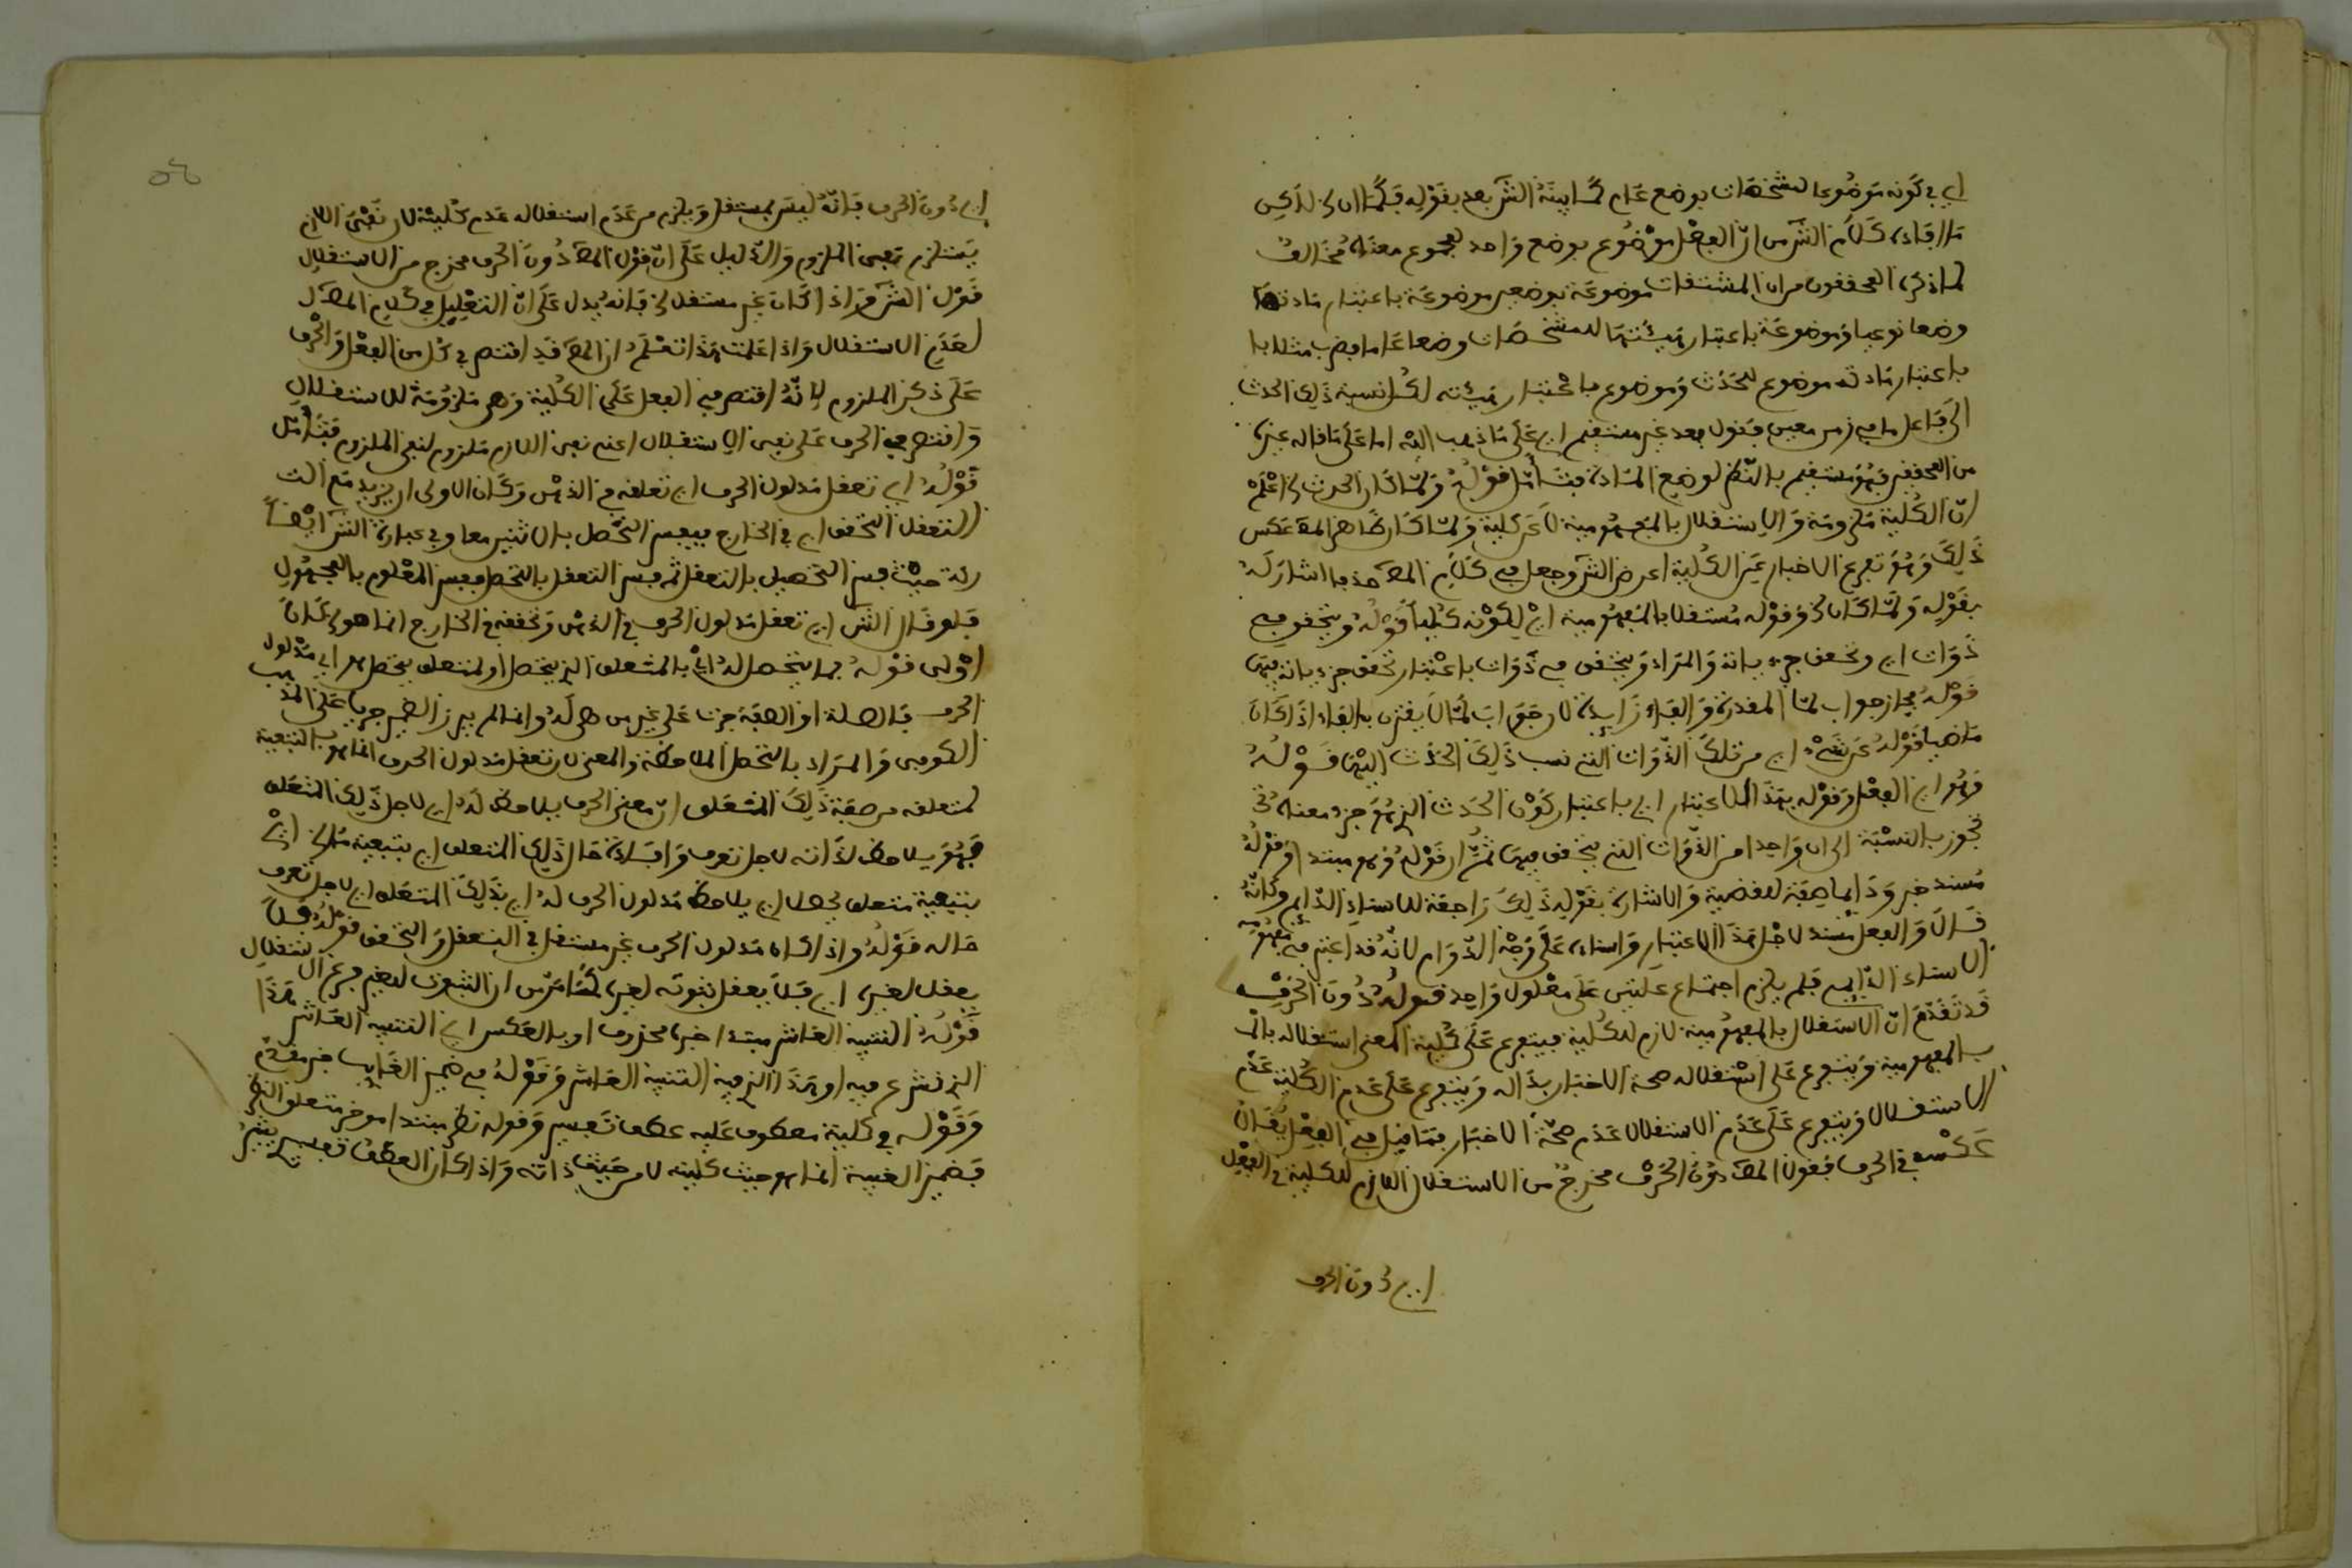 اي في كونه موضوعا لمشخصات بوضع عام كما بينه الش بعد بقوله فكما ان لكن
ما افاده كلام الش من ان الفعل موضوع بوضع واحد لمجموع معناه مخالف
لما ذكره المحققون من ان المشتقات موضوعة بوضعين موضوعة باعتبار مادتها
وضعا نوعيا وموضوعة باعتبار هيئتها للمشخصات وضعا عاما فضرب مثلا
باعتبار مادته موضوع للحدث وموضوع باعتبار هيئته لكل نسبة ذلك الحدث
الى فاعل ما في زمن معين فقول بعد غير مستقيم اي على ما ذهب اليه اما على ما قاله غيره
من المحققين فهو مستقيم بالنظر لوضع المادة فتأمل قوله ولما كان الحدث اعلم
ان الكلية ملزومة والاستقلال بالمفهومية لازم كلية ولما كان ظاهر المص عكس
ذلك وهو تفرع الاخبار عن الكلية اعرض الش وجعل في كلام المص حذفا اشار له
بقوله ولما كان وقوله مستقلا بالمفهومية اي لكونه كليا قوله ويتحقق في
ذوات اي وتحقق جزءياته والمراد ويتحقق في ذوات باعتبار تحقق جزءياته فيها
قوله فجاز جواب لما المقدرة والفاء زايدة لان جواب لما لا يقترن بالفاء اذا كان
ماضيا قوله عن شيء اي من تلك الذوات التي نسب ذلك الحدث اليها قوله
فهو اي الفعل وقوله بهذا الاعتبار اي باعتبار كون الحدث الذي هو جزء معناه
تجوز بالنسبة الى واحد من الذوات التي يتحقق فيها ثم ان قوله فهو مبتدا وقوله
مسند خبر ودايما صفة للقضية والاشارة بقوله ذلك راجعة للاسناد الدايم وكانه
قال والفعل مسند لاجل هذا الاعتبار واسناده على وجه الدوام لانه قد اعتبر في مفهومه
الاسناد الدايم فلم يلزم اجتماع علتين على معلول واحد قوله دون الحرف
قد تقدم ان الاستقلال بالمفهومية لازم للكلية فيتفرع على كلية المعنى استقلاله بالم
بالمفهومية ويتفرع على استقلاله صحة الاخبار بذاله ويتفرع على عدم الكلية عدم
الاستقلال ويتفرع على عدم الاستقلال عدم صحة الاخبار فما قيل في الفعل يقال
عكسه في الحرف فقول المص دون الحرف مخرج من الاستقلال اللازم للكلية في الفعل
اي دون الحرف
اي دون الحرف فانه ليس بمستقل ويلزم من عدم استقلاله عدم كليته لان نفي اللازم
يستلزم نفي الملزوم والدليل على ان قول المص دون الحرف مخرج من الاستقلال
قول الش واذا كان غير مستقل فانه يدل على ان التعليل في كلام المص
لعدم الاستقلال واذا علمت هذا تعلم ان المص قد اقتصر في كل من الفعل والحرف
على ذكر الملزوم لانه اقتصر في الفعل على الكلية وهي ملزومة للاستقلال
واقتصر في الحرف على نفي الاستقلال اعني نفي اللازم ملزوم لنفي الملزوم فتأمل
قوله اي تعقل مدلول الحرف اي تعلقه في الذهن وكان الاولى ان يزيد مع
التعقل التحقق اي في الخارج فيفسر التحصل بالاثنين معا وفي عبارة الش ايضا
ركة حيث فسر التحصيل بالتعقل ثم فسر التعقل بالتحصل ففسر المعلوم بالمجهول
فلو قال الش اي تعقل مدلول الحرف في الذهن وتحققه في الخارج انما هو لكان
اولى قوله بما يتحصل له اي بالمتعلق الذي يتحصل او لمتعلق يتحصل هو اي مدلول
الحرف فالصلة او الصفة جرت على غير من هي له وانما لم يبرز الضمير جريا على المذهب
الكوفي والمراد بالتحصل الملاحظة والمعنى لان تعقل مدلول الحرف انما هو بالتبعية
لمتعلقه من صفة ذلك المتعلق ان معنى الحرف يلاحظ له اي لاجل ذلك المتعلق
فهو يلاحظ لا لذاته لاجل تعرف وافادة حال ذلك المتعلق اي بتبعية اي
بتبعية متعلق يحصل اي يلاحظ مدلول الحرف له اي بذلك المتعلق اي لاجل تعرف
حاله قوله واذا كان مدلول الحرف غير مستقل في التعقل والتحقق قوله فلا
يعقل لغيره اي فلا يعقل ثبوته لغيره لما مر من ان الثبوت للغير فرع الاستقلال
قوله التنبيه العاشر مبتدا خبره محذوف او بالعكس اي التنبيه العاشر هذا
الذي نشرع فيه او هذا الذي فيه التنبيه العاشر وقوله في ضمير الغايب خبر مقدم
وقوله في كلية معطوف عليه عطف تفسير وقوله نظر مبتدا موخر متعلق النظر
بضمير الغيبة انما هو حيث كليته لا من حيث ذاته واذا كان العطف تفسير